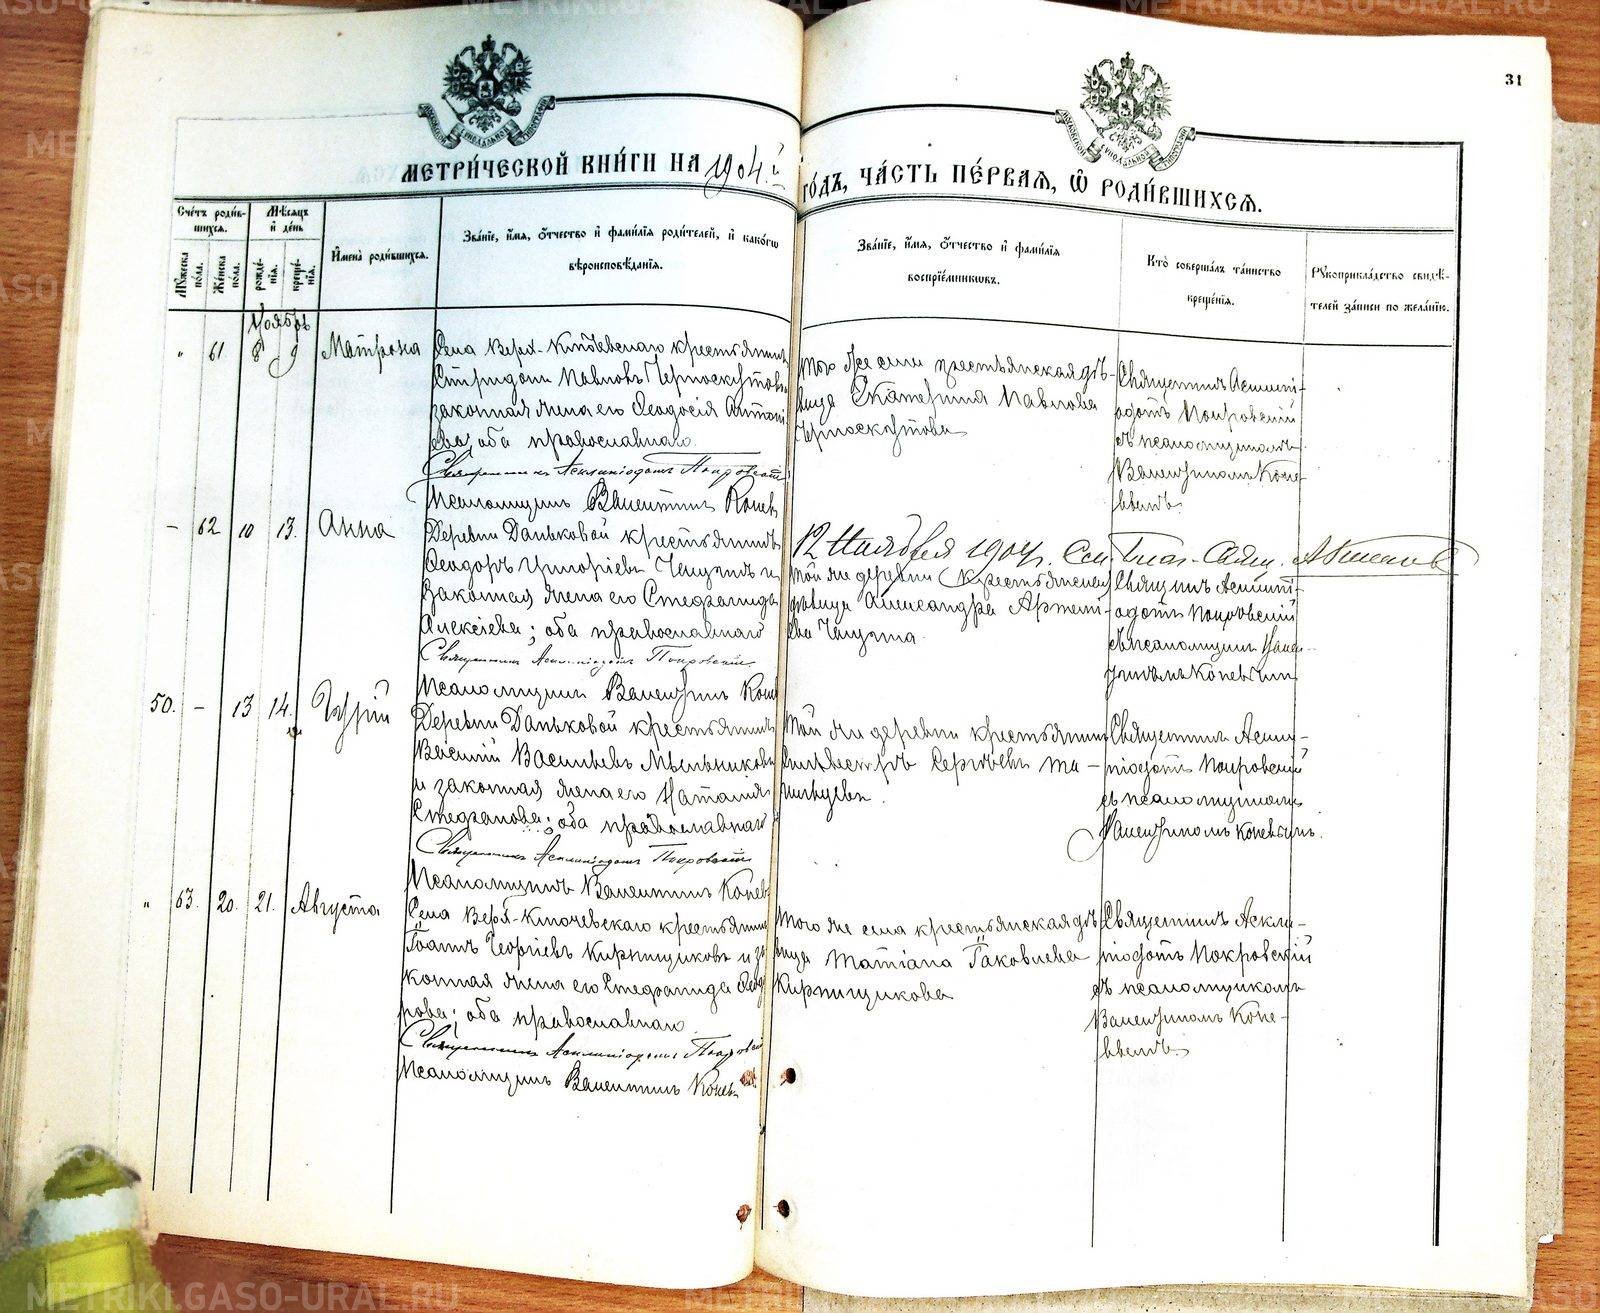 METRIKI.GASO-URAL.RU
31
МОСКОВСКОЙ СѴНОДАЛЬНОЙ ТИПОГРАФІИ
МЕТРИ́ЧЕСКОЙ КНИ́ГИ НА 1904.й го́дъ, ЧА́СТЬ ПЕ́РВАЯ, Ѽ РОДИ́ВШИХСЯ.
Сче́тъ роди́вшихся.
Мѣ́сяцъ и де́нь
Мꙋжеска по́ла.
Же́нска по́ла.
рожде́нія.
креще́нія.
И́мена̀ роди́вшихся.
Зва́ніе, и́мя, ѻ́тчество и фами́лія роди́телей, и како́гѡ
вѣроисповѣ́данія.
Зва́ніе, и́мя, ѻ́тчество и фами́лія
воспріе́мникѡвъ.
Кто̀ соверша́лъ та́инство
креще́нія.
Рꙋкоприкла́дство свидѣ́-
телей за́писи по жела́нію.
Ноябрь
" 61 8 9 Матрона
Села Верх-Ключевскаго крестьянинъ
Спиридонъ Павловъ Черноскутовъ
законная жена его Ѳеодосія
оба православнаго.
Священникъ Асклипіодотъ Покровскій
Псаломщикъ Валентинъ Конев
Того же села крестьянская дѣ-
вица Екатерина Павлова
Черноскутова
Священникъ Асклипі-
одотъ Покровскій
съ псаломщикомъ
Валентиномъ Коне-
вымъ.
– 62 10 13. Анна
Деревни Даньковой крестьянинъ
Ѳеодоръ Григоріевъ и
законная жена его Стефанида
Алексіева; оба православнаго
Священникъ Асклипіодотъ Покровскій
Псаломщикъ Валентинъ Кон
12 Ноября 1904 г.
Той же деревни крестьянская
дѣвица Александра Артемі-
ева
Священникъ Асклипі-
одотъ Покровскій
съ псаломщикомъ Вален-
тиномъ Коневымъ
50. – 13 14. Гурій
Деревни Даньковой крестьянинъ
Василій Васильевъ Мыльниковъ
и законная жена его Наталія
Стефанова; оба православнаго
Священникъ Асклипіодотъ Покровскій
Псаломщикъ Валентинъ Конев
Той же деревни крестьянинъ
Сильвестръ Сергѣевъ
Священникъ Аскли-
піодотъ Покровскій
съ псаломщикомъ
Валентиномъ Коневымъ.
" 63. 20. 21. Августа
Села Верх-Ключевскаго крестьянинъ
Іоаннъ Георгіевъ Кирпищиковъ и за
конная жена его Стефанида Ѳеодо
рова; оба православнаго
Священникъ Асклипіодотъ Покровскій
Псаломщикъ Валентинъ Конев
Того же села крестьянская дѣ-
вица Татіана Іаковлева
Кирпищикова
Священникъ Аскли-
піодотъ Покровскій
съ псаломщикомъ
Валентиномъ Коне-
вымъ.
METRIKI.GASO-URAL.RU